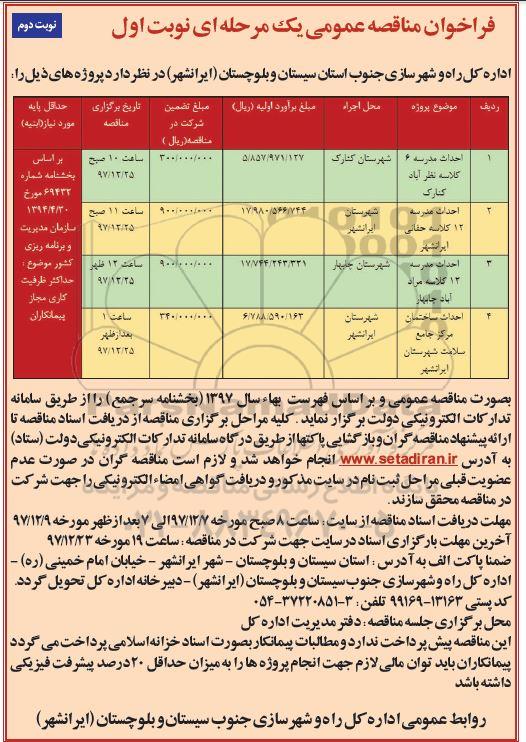 نوبت دوم
فراخوان مناقصه عمومی یک مرحله ای نوبت اول
اداره کل راه و شهرسازی جنوب استان سیستان و بلوچستان (ایرانشهر) در نظر دارد پروژه های ذیل را:
ردیف | موضوع پروژه | محل اجراء | مبلغ برآورد اولیه (ریال) | مبلغ تضمین شرکت در مناقصه(ریال) | تاریخ برگزاری مناقصه | حداقل پایه مورد نیاز(ابنیه)
۱ | احداث مدرسه ۶ کلاسه نظر آباد کنارک | شهرستان کنارک | ۵/۸۵۷/۹۷۱/۱۲۷ | ۳۰۰/۰۰۰/۰۰۰ | ساعت ۱۰ صبح ۹۷/۱۲/۲۵
۲ | احداث مدرسه ۱۲ کلاسه حقانی ایرانشهر | شهرستان ایرانشهر | ۱۷/۹۸۰/۵۶۶/۷۴۴ | ۹۰۰/۰۰۰/۰۰۰ | ساعت ۱۱ صبح ۹۷/۱۲/۲۵
۳ | احداث مدرسه ۱۲ کلاسه مراد آباد چابهار | شهرستان چابهار | ۱۷/۷۴۴/۲۴۳/۳۲۱ | ۹۰۰/۰۰۰/۰۰۰ | ساعت ۱۲ ظهر ۹۷/۱۲/۲۵
۴ | احداث ساختمان مرکز جامع سلامت شهرستان ایرانشهر | شهرستان ایرانشهر | ۶/۷۸۸/۵۹۰/۱۶۳ | ۳۴۰/۰۰۰/۰۰۰ | ساعت ۱ بعدازظهر ۹۷/۱۲/۲۵
بر اساس بخشنامه شماره ۶۹۴۳۲ مورخ ۱۳۹۴/۴/۳۰ سازمان مدیریت و برنامه ریزی کشور موضوع : حداکثر ظرفیت کاری مجاز پیمانکاران
بصورت مناقصه عمومی و بر اساس فهرست بهاء سال ۱۳۹۷ (بخشنامه سرجمع) را از طریق سامانه
تدارکات الکترونیکی دولت برگزار نماید . کلیه مراحل برگزاری مناقصه از دریافت اسناد مناقصه تا
ارائه پیشنهاد مناقصه گران و بازگشایی پاکتها از طریق درگاه سامانه تدارکات الکترونیکی دولت (ستاد)
به آدرس www.setadiran.ir انجام خواهد شد و لازم است مناقصه گران در صورت عدم
عضویت قبلی مراحل ثبت نام در سایت مذکور و دریافت گواهی امضاء الکترونیکی را جهت شرکت
در مناقصه محقق سازند.
مهلت دریافت اسناد مناقصه از سایت : ساعت ۸ صبح مورخه ۹۷/۱۲/۷ الی ۷ بعد از ظهر مورخه ۹۷/۱۲/۹
آخرین مهلت بارگزاری اسناد در سایت جهت شرکت در مناقصه : ساعت ۱۹ مورخه ۹۷/۱۲/۲۳
ضمنا پاکت الف به آدرس : استان سیستان و بلوچستان - شهر ایرانشهر - خیابان امام خمینی (ره) -
اداره کل راه و شهرسازی جنوب سیستان و بلوچستان (ایرانشهر) - دبیرخانه اداره کل تحویل گردد.
کد پستی ۱۳۱۶۳-۹۹۱۶۹ تلفن : ۳-۳۷۲۲۰۸۵۱-۰۵۴
محل برگزاری جلسه مناقصه : دفتر مدیریت اداره کل
این مناقصه پیش پرداخت ندارد و مطالبات پیمانکار بصورت اسناد خزانه اسلامی پرداخت می گردد
پیمانکاران باید توان مالی لازم جهت انجام پروژه ها را به میزان حداقل ۲۰ درصد پیشرفت فیزیکی
داشته باشد
روابط عمومی اداره کل راه و شهرسازی جنوب سیستان و بلوچستان (ایرانشهر)